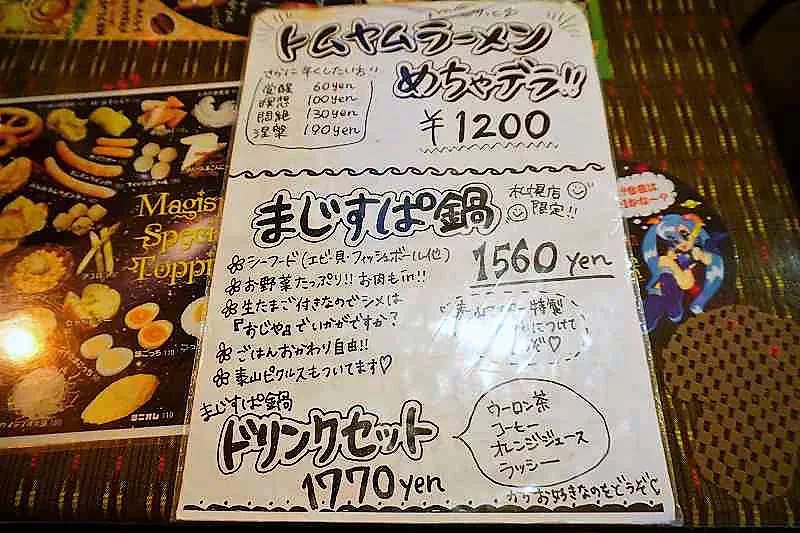 トムヤムラーメン
めちゃデラ!!
¥1200
さらに辛くしたい方↓
覚醒 60yen
瞑想 100yen
悶絶 130yen
涅槃 190yen
まじすぱ鍋
札幌店
限定!!
1560yen
シーフード(エビ・貝・フィッシュボール他)
お野菜たっぷり!! お肉もin!!
生たまご付きなのでシメは
『おじや』でいかがですか?
ごはんおかわり自由!!
泰山ピクルスもついてます♡
特製
につけて
まじすぱ鍋
ドリンクセット
1770yen
ウーロン茶
コーヒー
オレンジジュース
ラッシー
からお好きなのをどうぞ
Magi
Spec
Toppi